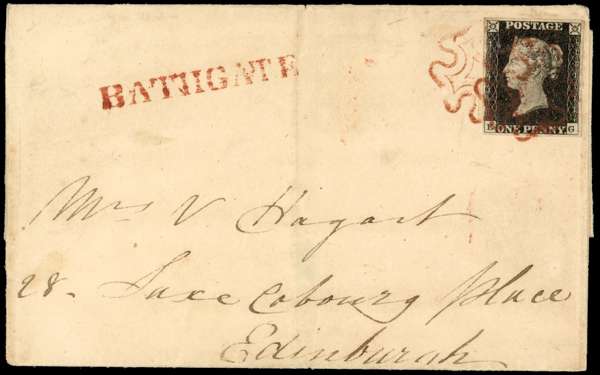 BATHGATE
POSTAGE
E ONE PENNY G
Mrs V Hagart
28. Saxe Cobourg Place
Edinburgh